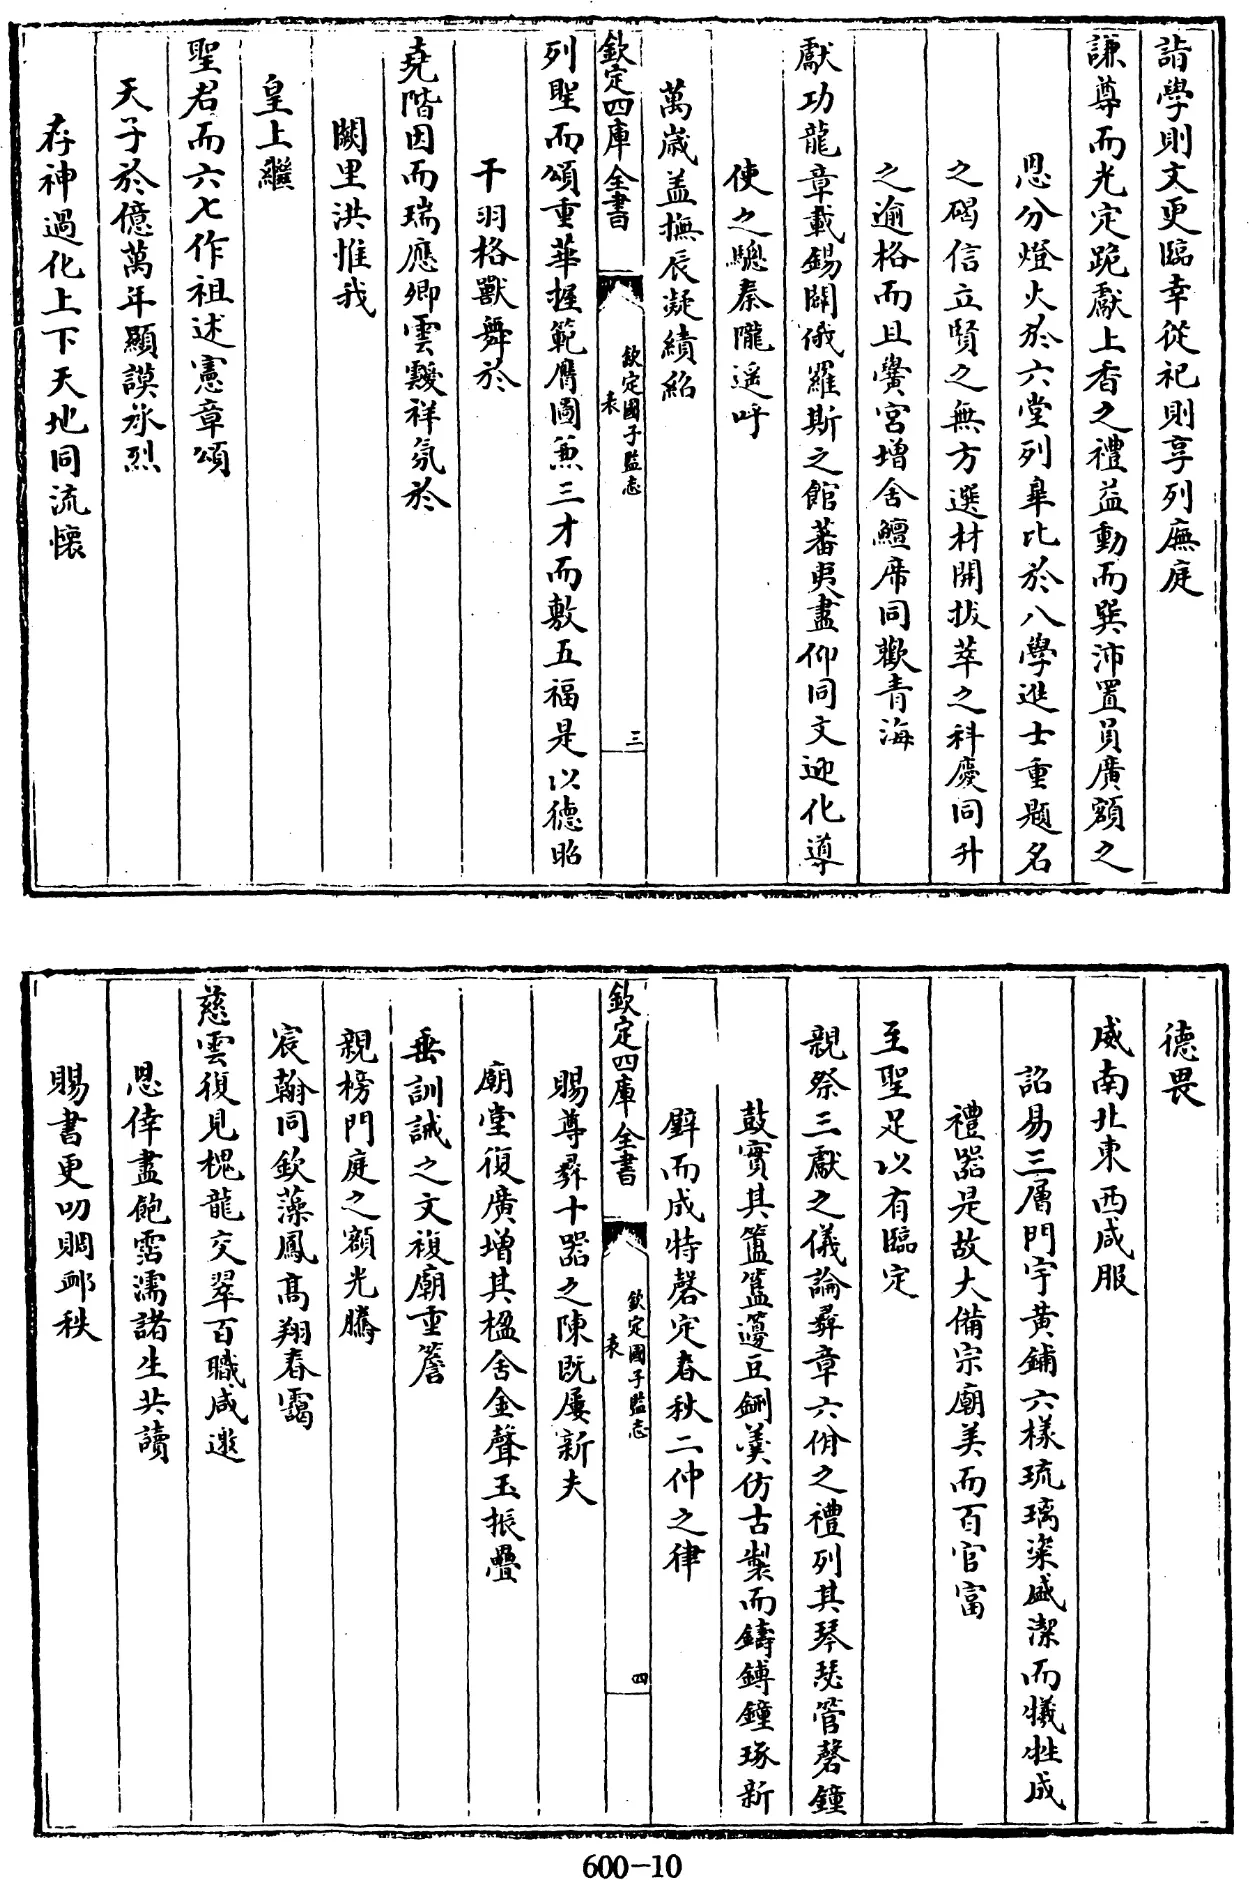 詣學則文更臨幸從祀則享列廡庭
謙尊而光定跪獻上香之禮益動而巽沛置員廣額之
恩分燈火於六堂列臯比於八學進士重題名
之碣信立賢之無方選材開拔萃之科慶同升
之逾格而且黌宮增舍鱣席同歡青海
獻功龍章載錫闢俄羅斯之館蕃夷盡仰同文迎化導
使之驄秦隴遥呼
萬歲盖撫辰凝績紹
欽定四庫全書
欽定國子監志
表
三
列聖而頌重華握範膺圖兼三才而敷五福是以德昭
干羽格獸舞於
堯階因而瑞應卿雲靉祥氛於
闕里洪惟我
皇上繼
聖君而六七作祖述憲章頌
天子於億萬年顯謨承烈
存神過化上下天地同流懷
德畏
威南北東西咸服
詔易三層門宇黄鋪六樣琉璃粢盛潔而犧牲成
禮器是故大備宗廟美而百官富
至聖足以有臨定
親祭三獻之儀論彞章六佾之禮列其琴瑟管磬鐘
鼓實其簠簋籩豆鉶羮仿古製而鑄鎛鐘琢新
璧而成特磬定春秋二仲之律
欽定四庫全書
欽定國子監志
表
四
賜尊彞十器之陳既屢新夫
廟堂復廣增其楹舍金聲玉振疊
垂訓誡之文複廟重簷
親榜門庭之額光騰
宸翰同欽藻鳳高翔春靄
慈雲復見槐龍交翠百職咸邀
恩倖盡飽霑濡諸生共讀
賜書更叨賙䘏秩
600-10